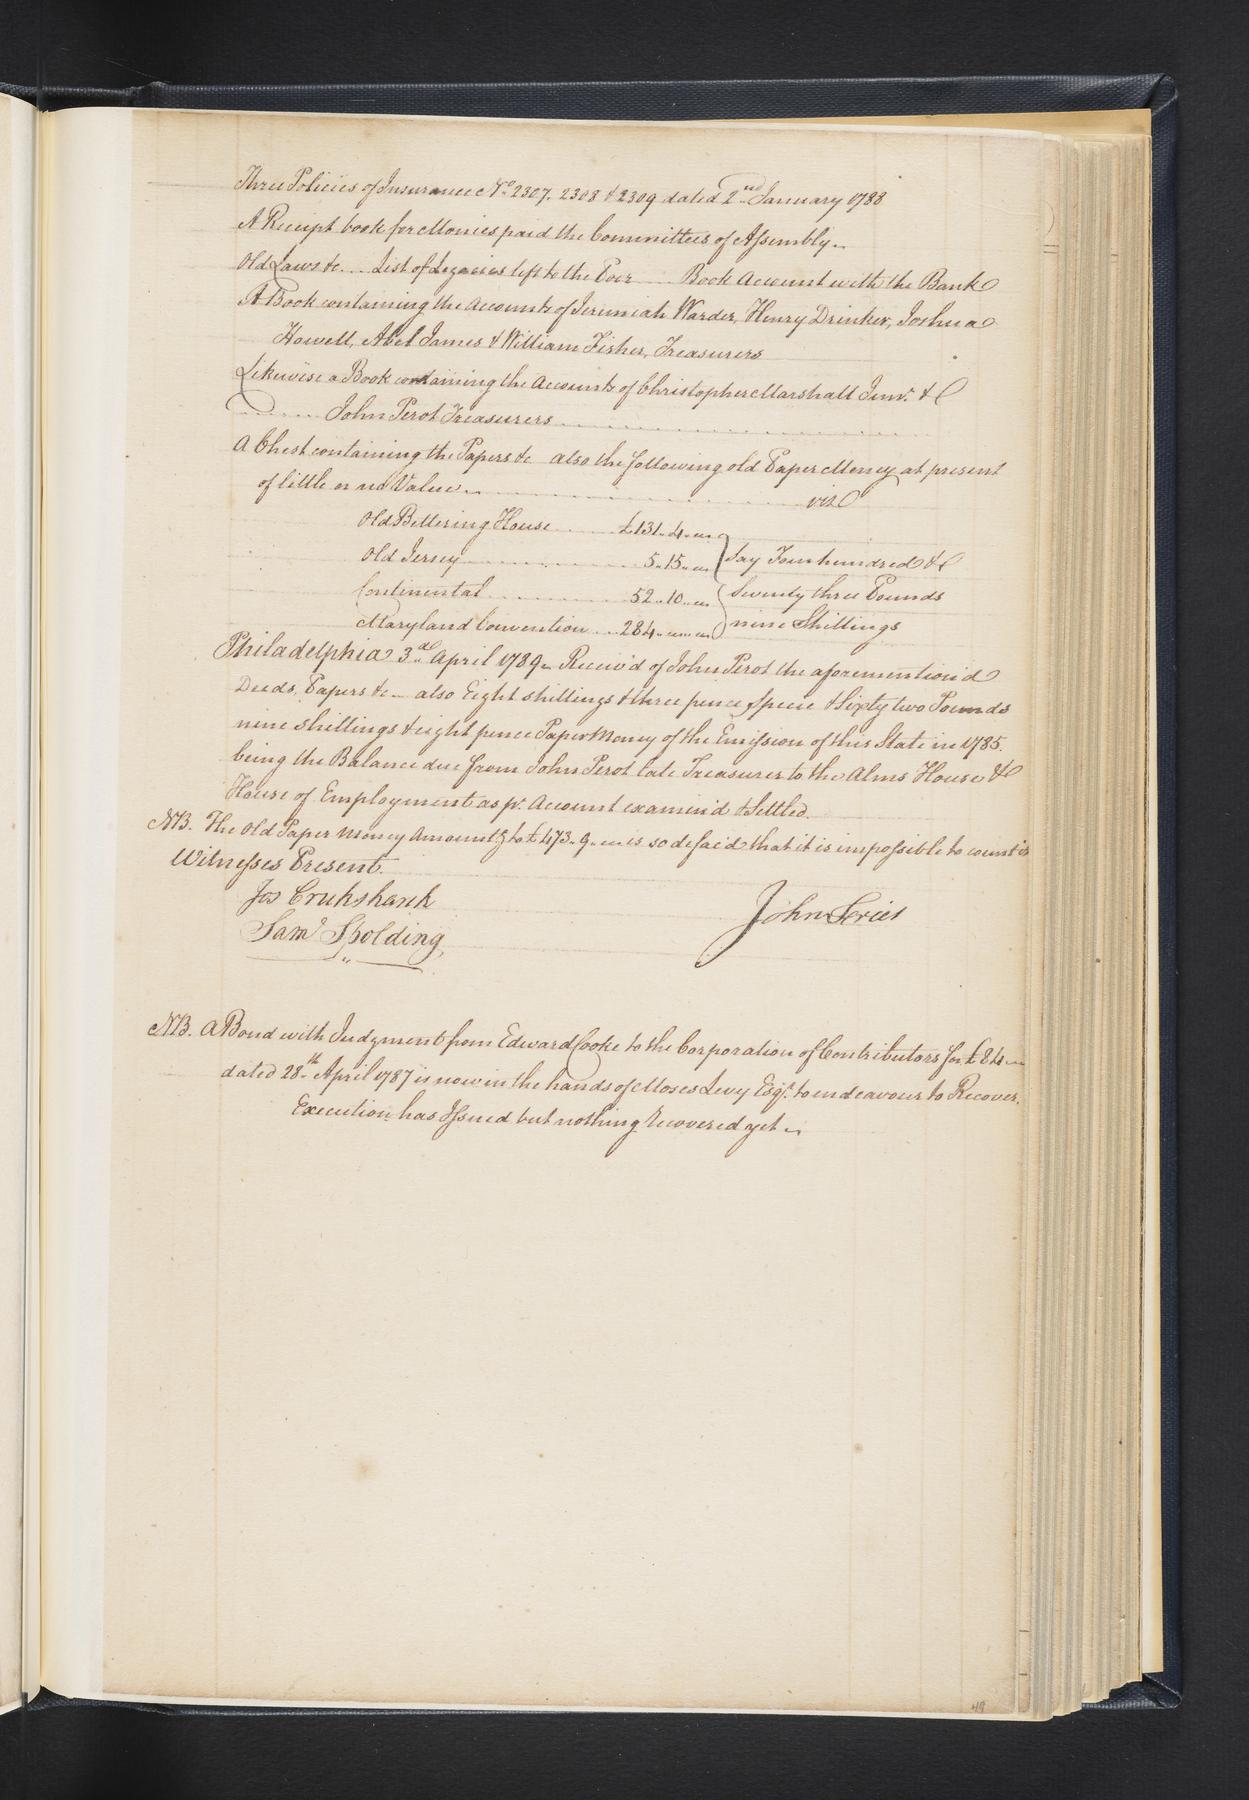 Three Policies of Insurance No. 2307, 2308 & 2309 dated 2nd January 1788
A Receipt book for Monies paid the Committees of Assembly..
Old Laws &c. ... List of Legacies left to the Poor ..... Book Account with the Bank
A Book containing the Accounts of Jeremiah Warder, Henry Drinker, Joshua
Howell, Abel James & William Fisher, Treasurers
Likewise a Book containing the Accounts of Christopher Marshall Junr. &
...... John Perot Treasurers ......
A Chest containing the Papers &c also the following old Paper Money at present
of little or no Value .. ...... viz
Old Bettering House ..... £131..4..
Old Jersey ..... 5..15.. say Four hundred &
Continental ..... 52..10.. Seventy three Pounds
Maryland Convention ... 284.. nine Shillings
Philadelphia 3d. April 1789. Receiv'd of John Perot the aforemention'd
Deeds, Papers &c.. also Eight shillings & three pence specie & Sixty two Pounds
nine shillings & eight pence Paper Money of the Emission of this State in 1785.
being the Balance due from John Perot late Treasurer to the Alms House &
House of Employment as pr. Account examin'd & Settled.
NB. The Old Paper Money Amountg to £473..9.. is so defac'd that it is impossible to count it
Witnesses Present.
Jos Crukshank
John
Saml Spolding
NB. A Bond with Judgment from Edward Cooke to the Corporation of Contributors for £84..
dated 28th. April 1787 is now in the hands of Moses Levy Esqr. to endeavour to Recover.
Execution has Issued but nothing recovered yet..
49